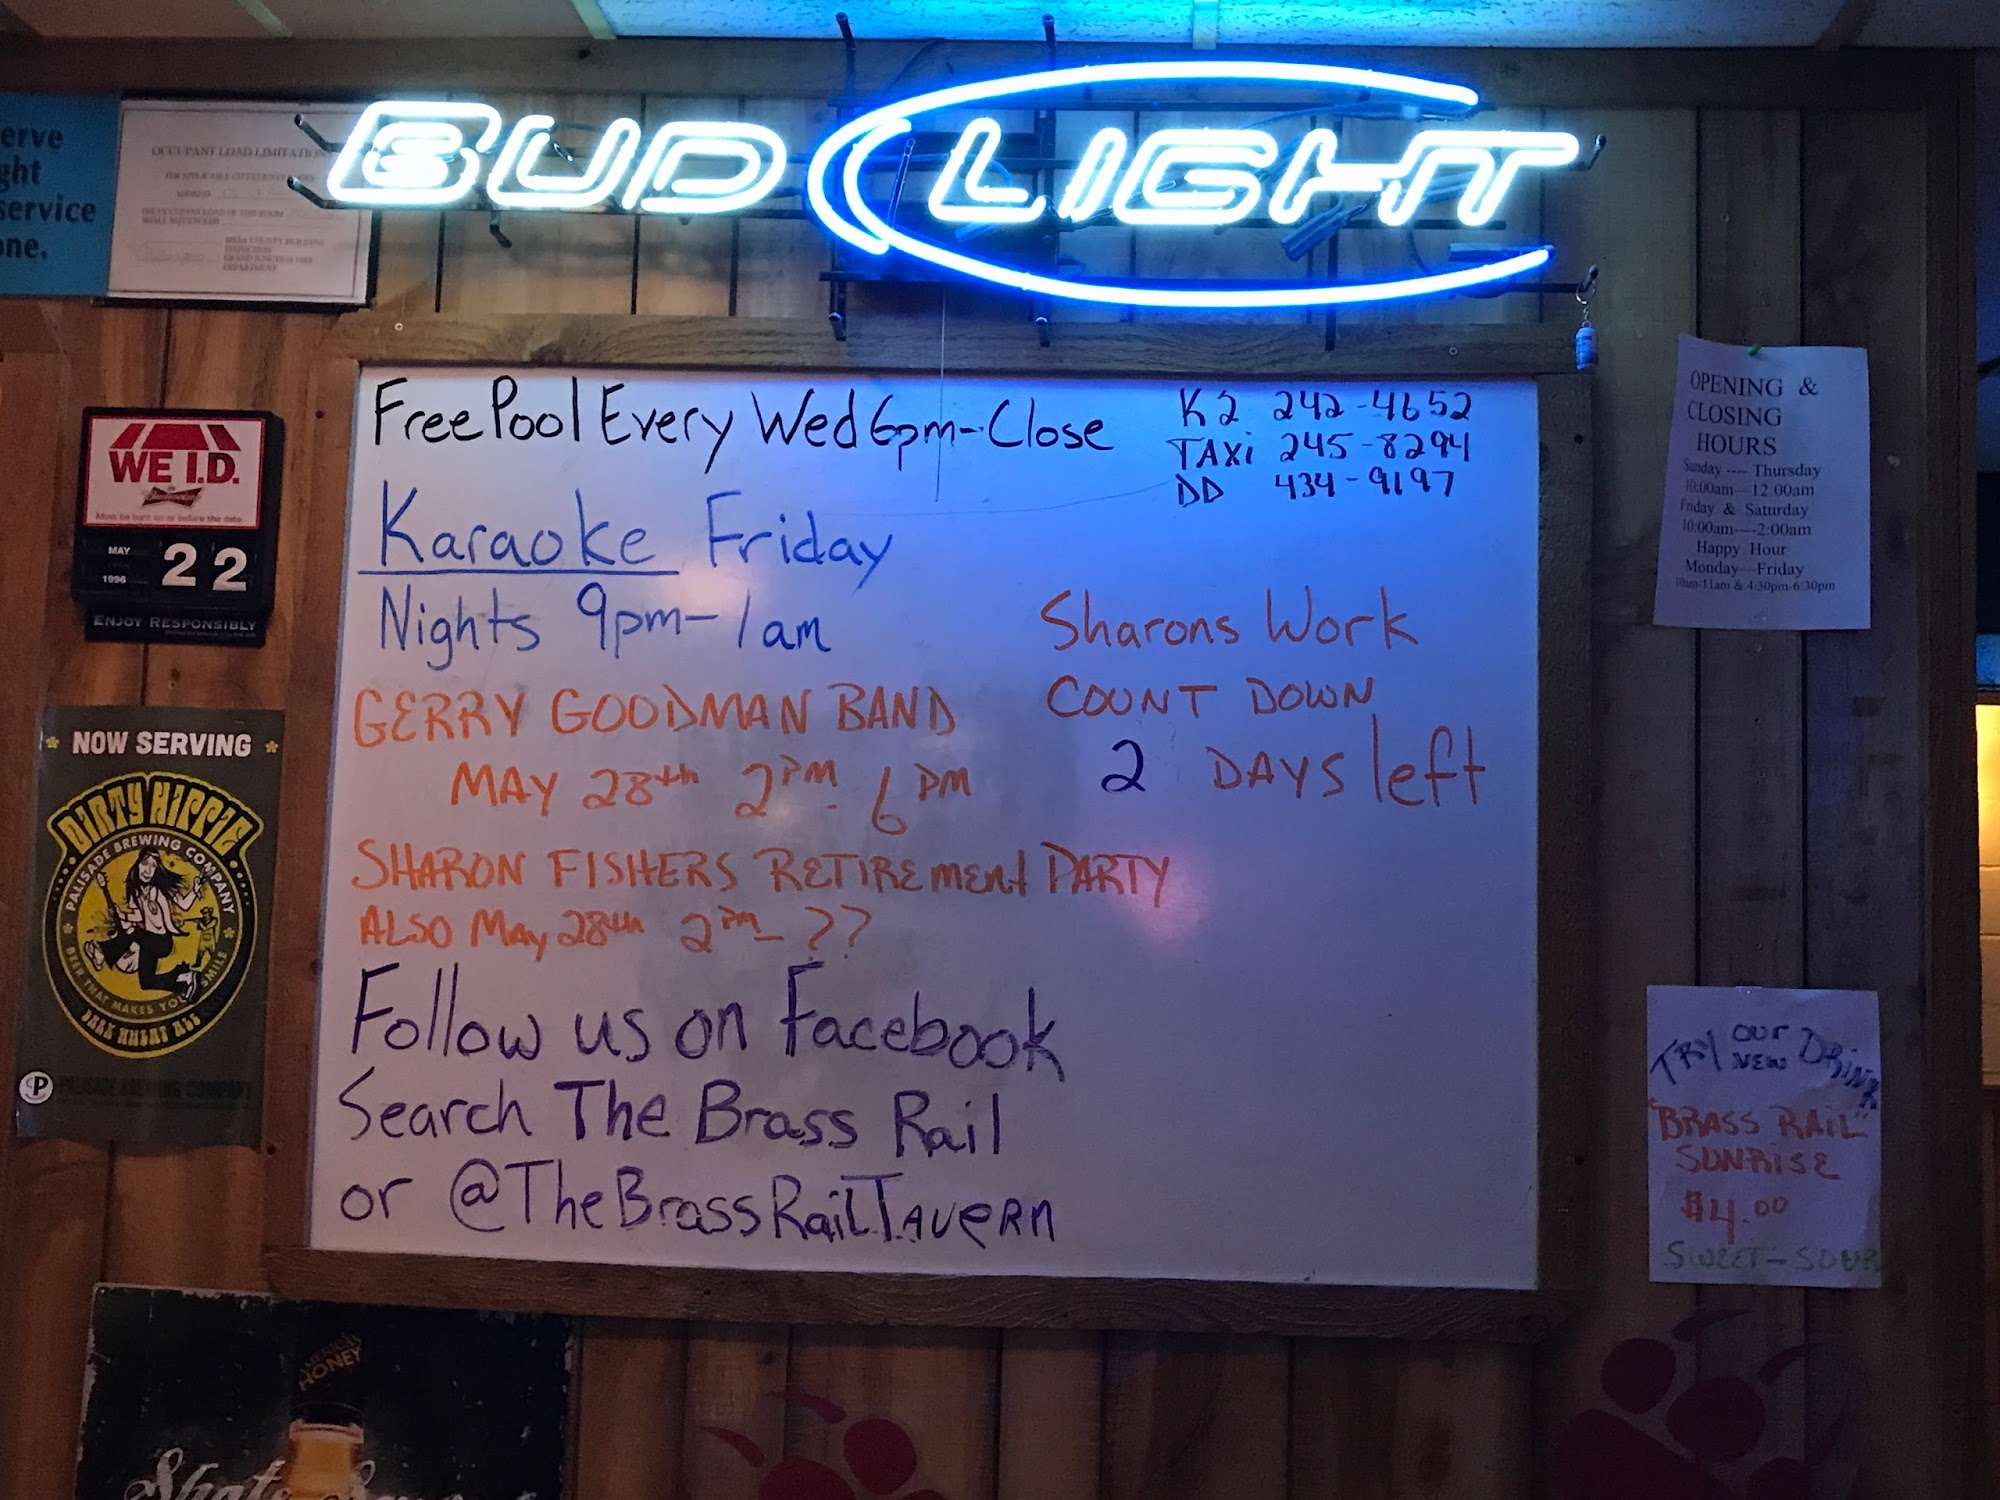 BUD LIGHT
erve
ght
service
one.
OCCUPANT LOAD LIMITATION
ADDRESS
THE OCCUPANT LOAD OF THIS ROOM
SHALL NOT EXCEED
MESA COUNTY BUILDING
INSPECTION
GRAND JUNCTION FIRE
DEPARTMENT
WE I.D.
Budweiser
Must be born on or before the date
MAY
1996
22
ENJOY RESPONSIBLY
NOW SERVING
DIRTY HIPPIE
PALISADE BREWING COMPANY
BEER THAT MAKES YOU SMILE
DARK WHEAT ALE
P PALISADE BREWING COMPANY
Free Pool Every Wed 6pm-Close
K2 242-4652
TAXi 245-8294
DD 434-9197
Karaoke Friday
Nights 9pm-1am
GERRY GOODMAN BAND
MAY 28th 2PM 6PM
SHARON FISHERS RETIREMENT PARTY
ALSO May 28th 2PM- ??
Sharons Work
COUNT DOWN
2 DAYS left
Follow us on Facebook
Search The Brass Rail
or @TheBrassRailTAVeRn
OPENING &
CLOSING
HOURS
Sunday ---- Thursday
10:00am---12:00am
Friday & Saturday
10:00am----2:00am
Happy Hour
Monday---Friday
10am-11am & 4:30pm-6:30pm
TRY OUR NEW DRiNK
"BRASS RAIL"
SUNRiSE
$4.00
SWEET-SOUR
HONEY